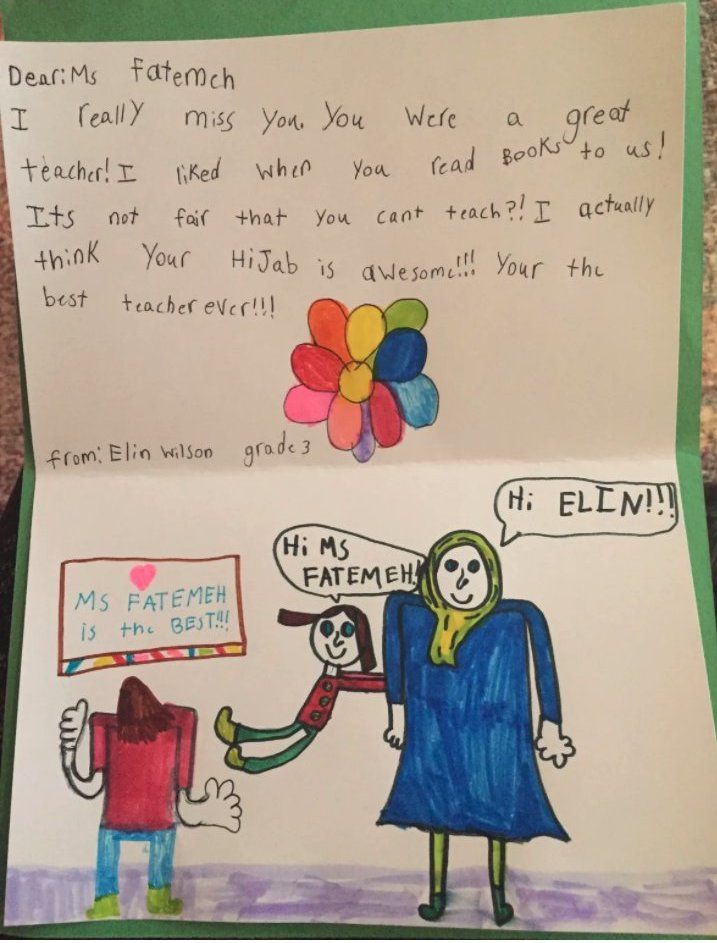 Dear: Ms Fatemeh
I really miss you. You were a great
teacher! I liked when you read BOOKS to us!
Its not fair that you cant teach?! I actually
think Your HiJab is awesome!!! Your the
best teacher ever!!!
from: Elin Wilson grade 3
Hi ELIN!!!
Hi MS
FATEMEH!
MS FATEMEH
is the BEST!!!